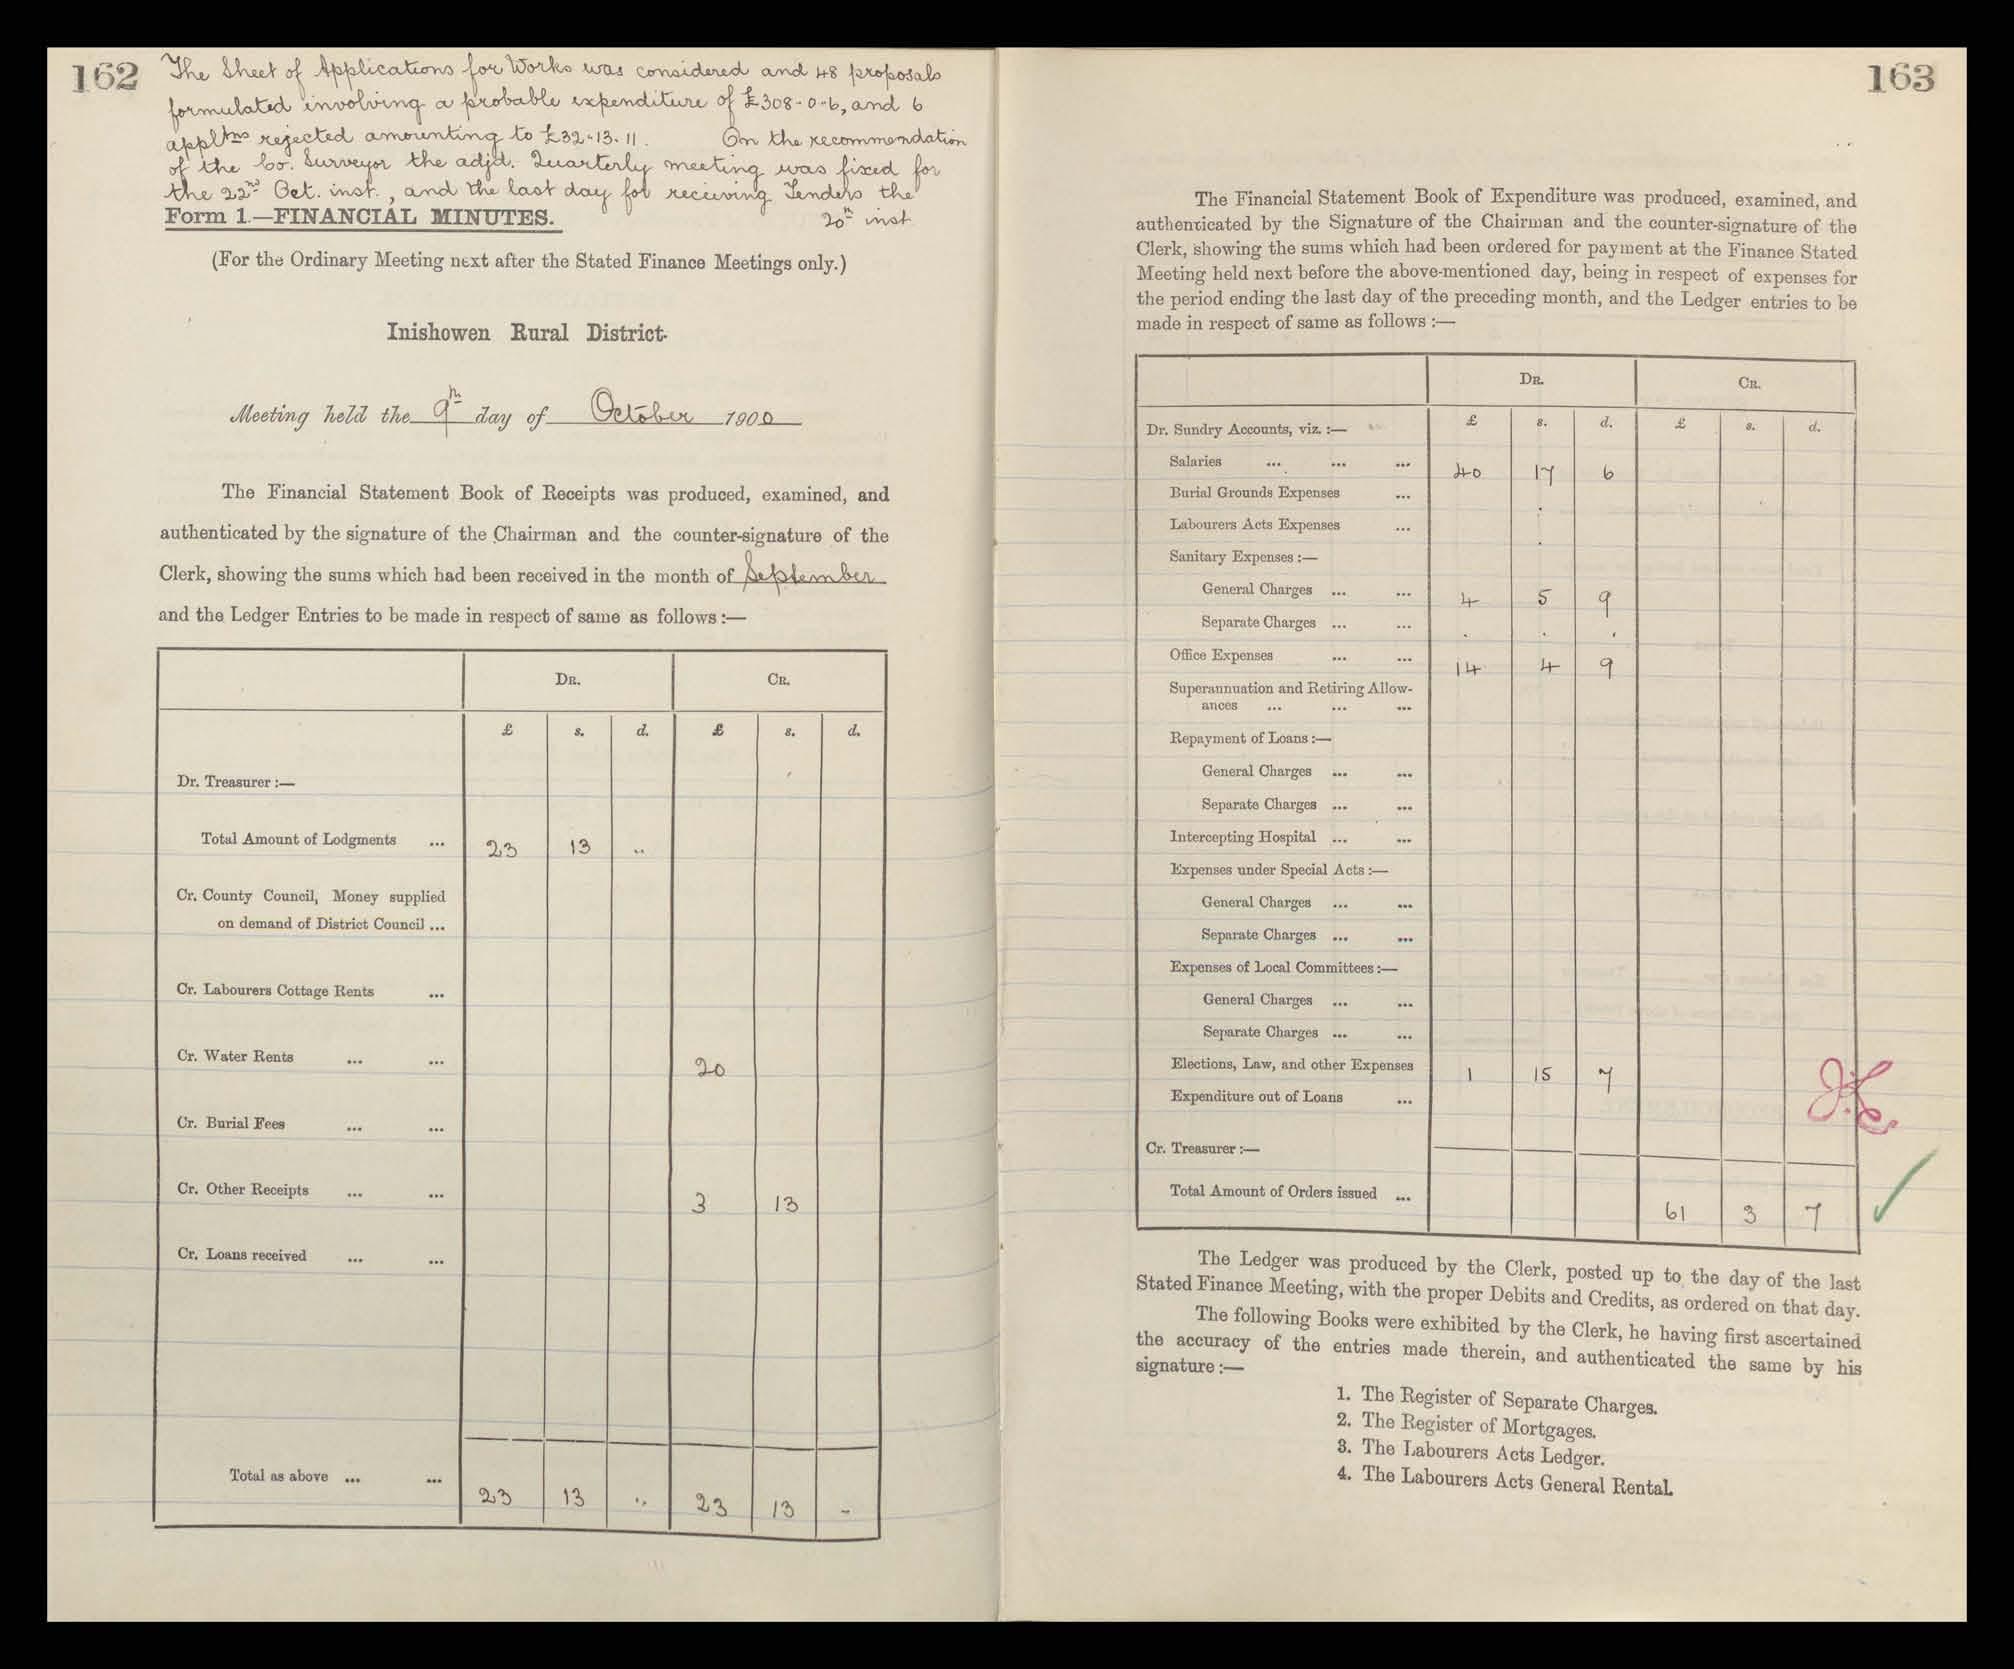 162
The Sheet of Applications for Works was considered and 48 proposals
formulated involving a probable expenditure of £308-0-6, and 6
appltns rejected amounting to £32-13-11. On the recommendation
of the Co. Surveyor the adjd. Quarterly meeting was fixed for
the 22nd Oct. inst., and the last day for receiving Tenders the
20th inst.
Form 1.—FINANCIAL MINUTES.
(For the Ordinary Meeting next after the Stated Finance Meetings only.)
Inishowen Rural District.
Meeting held the 9th day of October 1900
The Financial Statement Book of Receipts was produced, examined, and
authenticated by the signature of the Chairman and the counter-signature of the
Clerk, showing the sums which had been received in the month of September
and the Ledger Entries to be made in respect of same as follows :—
DR. CR.
£ s. d. £ s. d.
Dr. Treasurer :—
Total Amount of Lodgments ... 23 13 ..
Cr. County Council, Money supplied
on demand of District Council ...
Cr. Labourers Cottage Rents ...
Cr. Water Rents ... ... 20
Cr. Burial Fees ... ...
Cr. Other Receipts ... ... 3 13
Cr. Loans received ... ...
Total as above ... ... 23 13 .. 23 13 -
163
The Financial Statement Book of Expenditure was produced, examined, and
authenticated by the Signature of the Chairman and the counter-signature of the
Clerk, showing the sums which had been ordered for payment at the Finance Stated
Meeting held next before the above-mentioned day, being in respect of expenses for
the period ending the last day of the preceding month, and the Ledger entries to be
made in respect of same as follows :—
DR. CR.
£ s. d. £ s. d.
Dr. Sundry Accounts, viz. :—
Salaries ... ... ... 40 17 6
Burial Grounds Expenses ...
Labourers Acts Expenses ...
Sanitary Expenses :—
General Charges ... ... 4 5 9
Separate Charges ... ...
Office Expenses ... ... 14 4 9
Superannuation and Retiring Allow-
ances ... ... ...
Repayment of Loans :—
General Charges ... ...
Separate Charges ... ...
Intercepting Hospital ... ...
Expenses under Special Acts :—
General Charges ... ...
Separate Charges ... ...
Expenses of Local Committees :—
General Charges ... ...
Separate Charges ... ...
Elections, Law, and other Expenses 1 15 7
Expenditure out of Loans ...
Cr. Treasurer :—
Total Amount of Orders issued ... 61 3 7
The Ledger was produced by the Clerk, posted up to the day of the last
Stated Finance Meeting, with the proper Debits and Credits, as ordered on that day.
The following Books were exhibited by the Clerk, he having first ascertained
the accuracy of the entries made therein, and authenticated the same by his
signature :—
1. The Register of Separate Charges.
2. The Register of Mortgages.
3. The Labourers Acts Ledger.
4. The Labourers Acts General Rental.